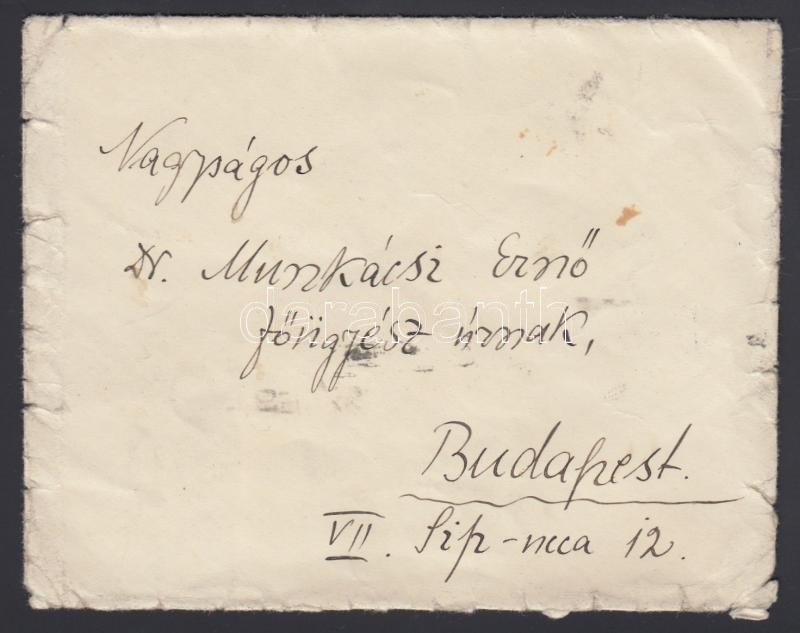 Nagyságos
Dr. Munkácsi Ernő
főügyész úrnak,
darabanth
Budapest.
VII. Sip-ucca 12.